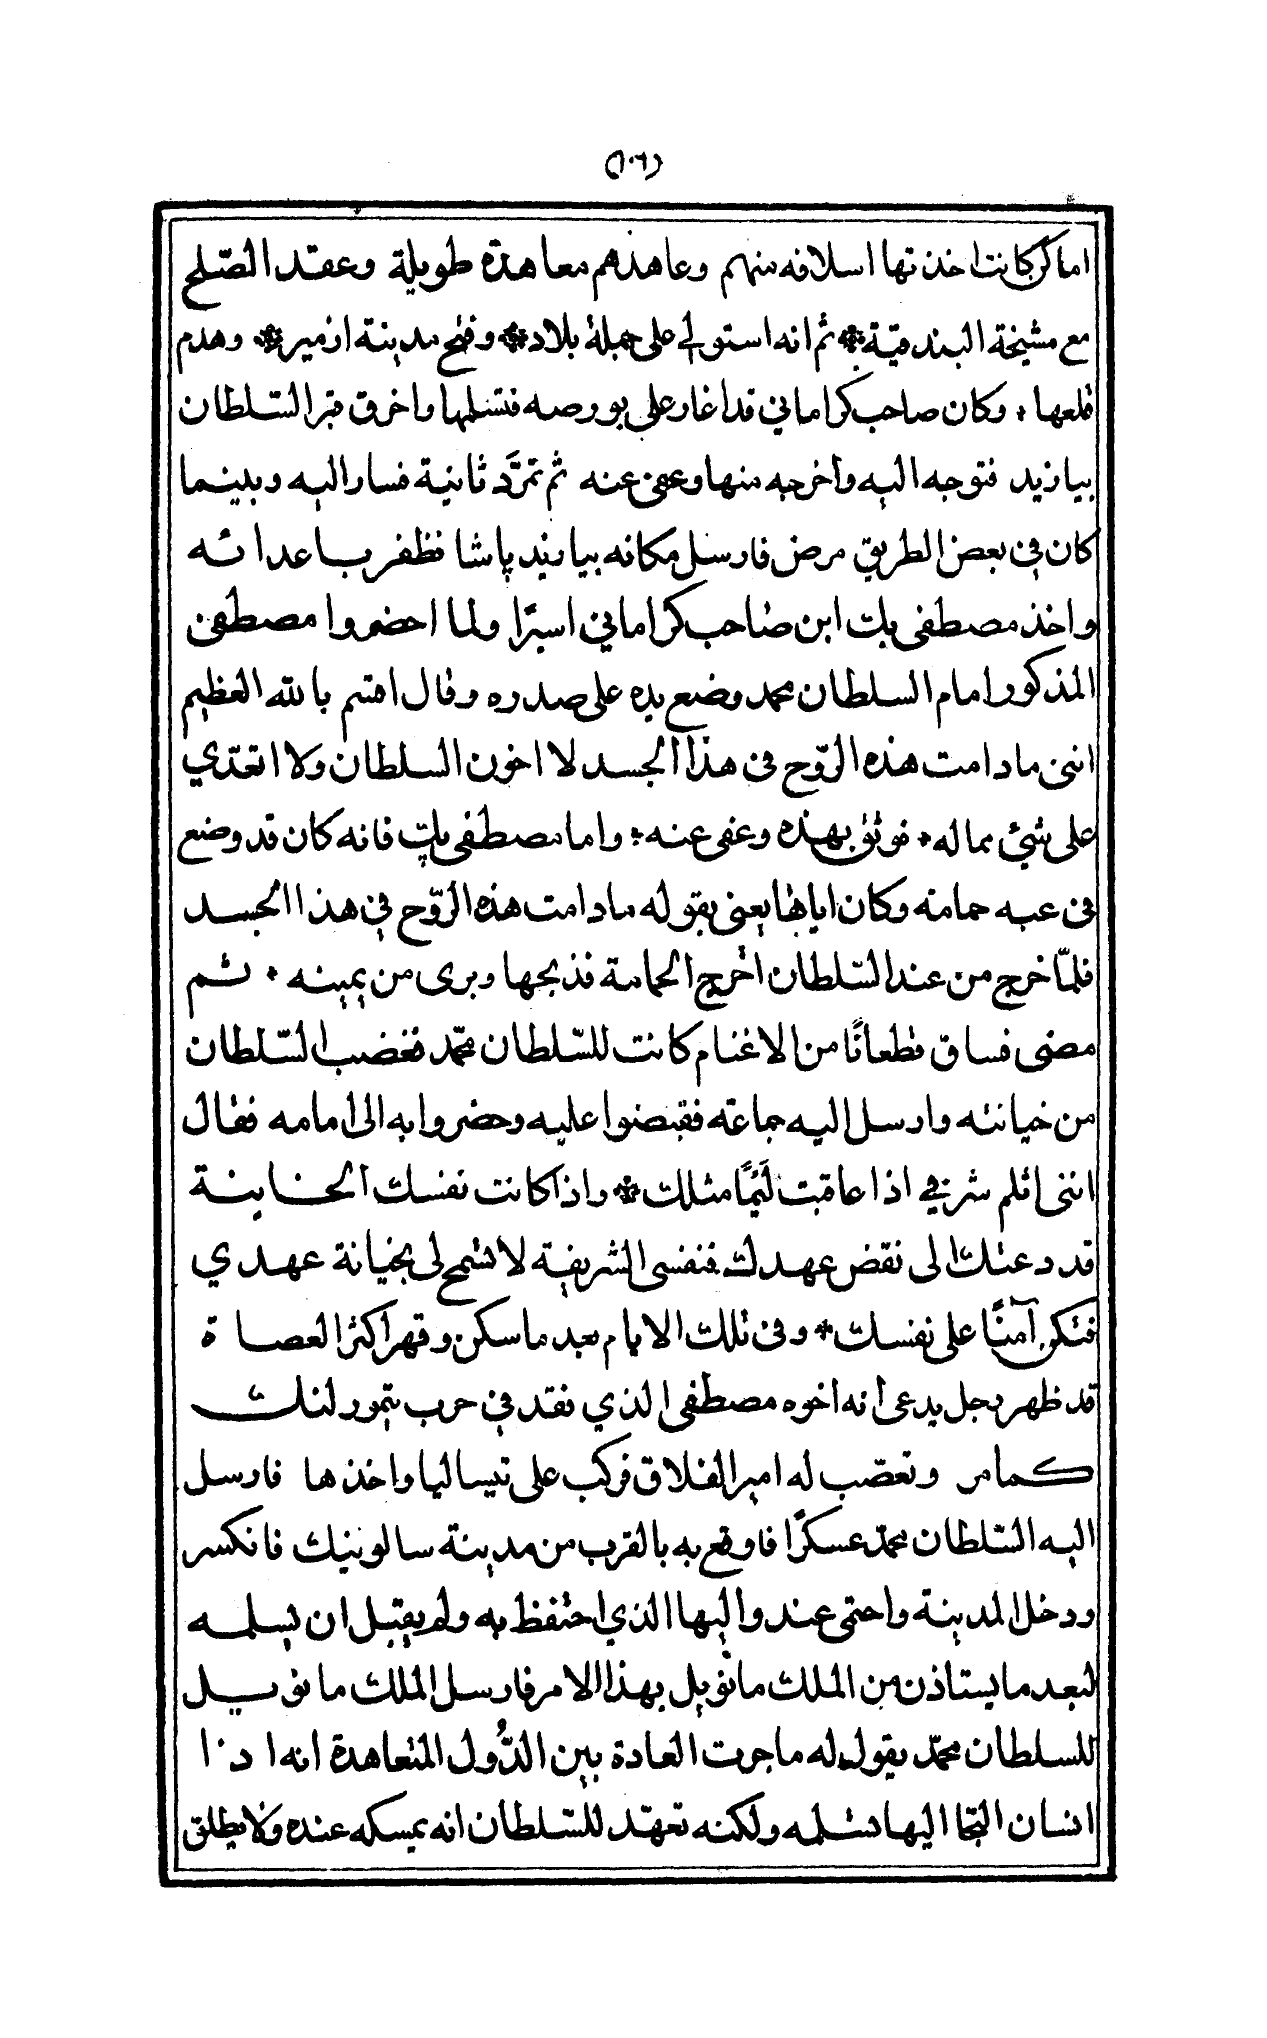 (١٠٦)
اماكن كانت اخذتها اسلافه منهم وعاهدهم معاهدة طويلة وعقد الصّلح
مع مشيخة البندقيّة * ثم انه استولي على جملة بلاد * وفتح مدينة ازمير * وهدم
قلعها * وكان صاحب كراماني قد اغار على بورصه فتسلمها واحرق قبر السّلطان
بيازيد فتوجه اليه واخرجه منها وعفى عنه ثم تمرَّد ثانية فسار اليه وبينما
كان في بعض الطريق مرض فارسل مكانه بيازيد پاشا فظفر باعدائه
واخذ مصطفى بك ابن صاحب كراماني اسيرًا ولما احضروا مصطفى
المذكور امام السلطان محمد وضع يده على صدره وقال اقسم بالله العظيم
انني مادامت هذه الرّوح في هذا الجسد لا اخون السلطان ولا اتعدّي
على شيئ مما له * فوثق بهذه وعفى عنه * واما مصطفى بك فانه كان قد وضع
في عبه حمامة وكان اياها يعني بقوله مادامت هذه الرّوح في هذا الجسد
فلمّا خرج من عند السّلطان اخرج الحمامة فذبحها وبرى من يمينه * ثم
مضى فساق قطعانًا من الاغنام كانت للسّلطان محمّد فغضب السّلطان
من خيانته وارسل اليه جماعة فقبضوا عليه وحضروا به الى امامه فقال
انني اثلم شرفي اذا عاقبت لَئيمًا مثلك * واذا كانت نفسك الخاينة
قد دعتك الى نقض عهدك فنفسي الشريفة لا تسمح لي بخيانة عهدي
فتكون آمنًا على نفسك * وفي تلك الايام بعد ما سكن وقهر اكثر العصاة
قد ظهر رجل يدعى انه اخوه مصطفى الذي فقد في حرب تيمور لنك
كما مر وتعصّب له امير الفلاق فركب على تيساليا واخذها فارسل
اليه السّلطان محمّد عسكرًا فاوقع به بالقرب من مدينة سالونيك فانكسر
ودخل المدينة واحتمى عند واليها الذي احتفظ به ولم يقبل ان يسلمه
لبعد ما يستاذن من الملك مانويل بهذا الامر فارسل الملك مانويل
للسلطان محمّد يقول له ما جرت العادة بين الدُّول المتعاهدة انه اذا
انسان التجا اليها تسلمه ولكنه تعهّد للسّلطان انه يمسكه عنده ولا يطلق